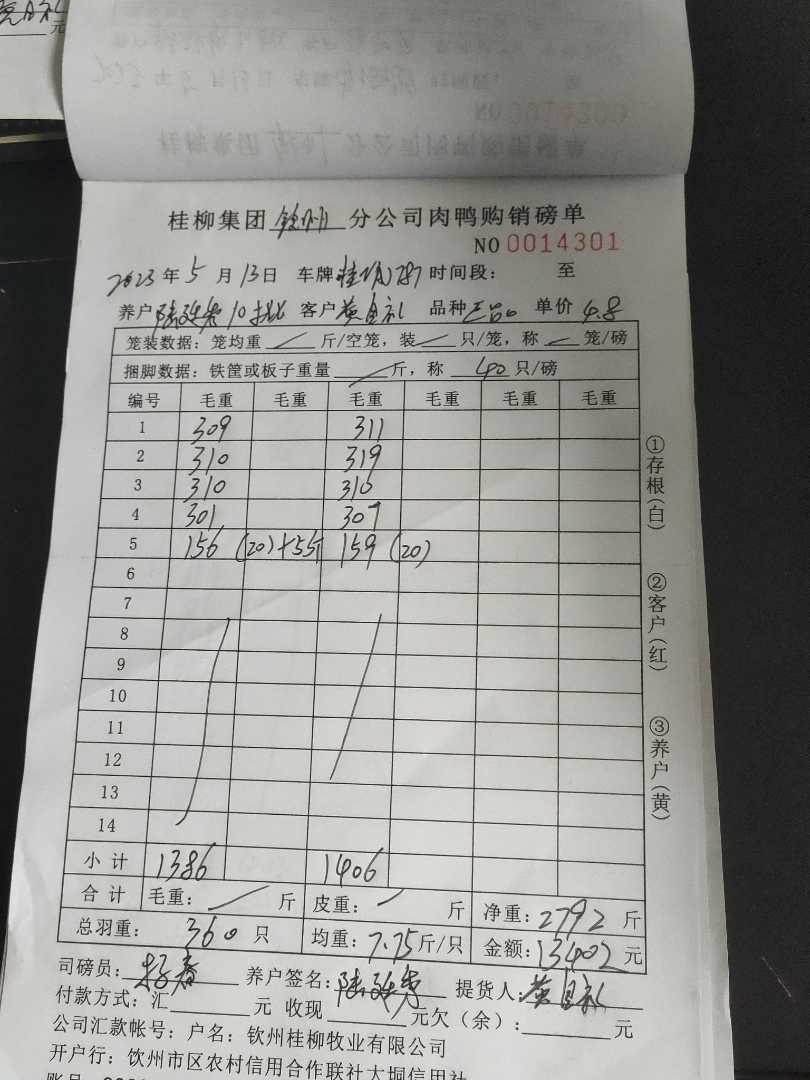 桂柳集团 钦州 分公司肉鸭购销磅单
NO 0014301
2023 年 5 月 13 日 车牌 时间段： 至
养户 10批 客户 黄自礼 品种 三品 单价 4.8
笼装数据：笼均重 斤/空笼，装 只/笼，称 笼/磅
捆脚数据：铁筐或板子重量 斤，称 40 只/磅
编号 毛重 毛重 毛重 毛重 毛重 毛重
1 309 311
2 310 319
3 310 310
4 301 307
5 156 (20)+55斤 159 (20)
6
7
8
9
10
11
12
13
14
小计 1386 1406
合计 毛重： 斤 皮重： 斤 净重：2792 斤
总羽重： 360 只 均重：7.75 斤/只 金额：13402 元
司磅员： 养户签名： 提货人：黄自礼
付款方式：汇 元 收现 元欠（余）： 元
公司汇款帐号：户名：钦州桂柳牧业有限公司
开户行：钦州市区农村信用合作联社大垌信用社
①存根（白）
②客户（红）
③养户（黄）